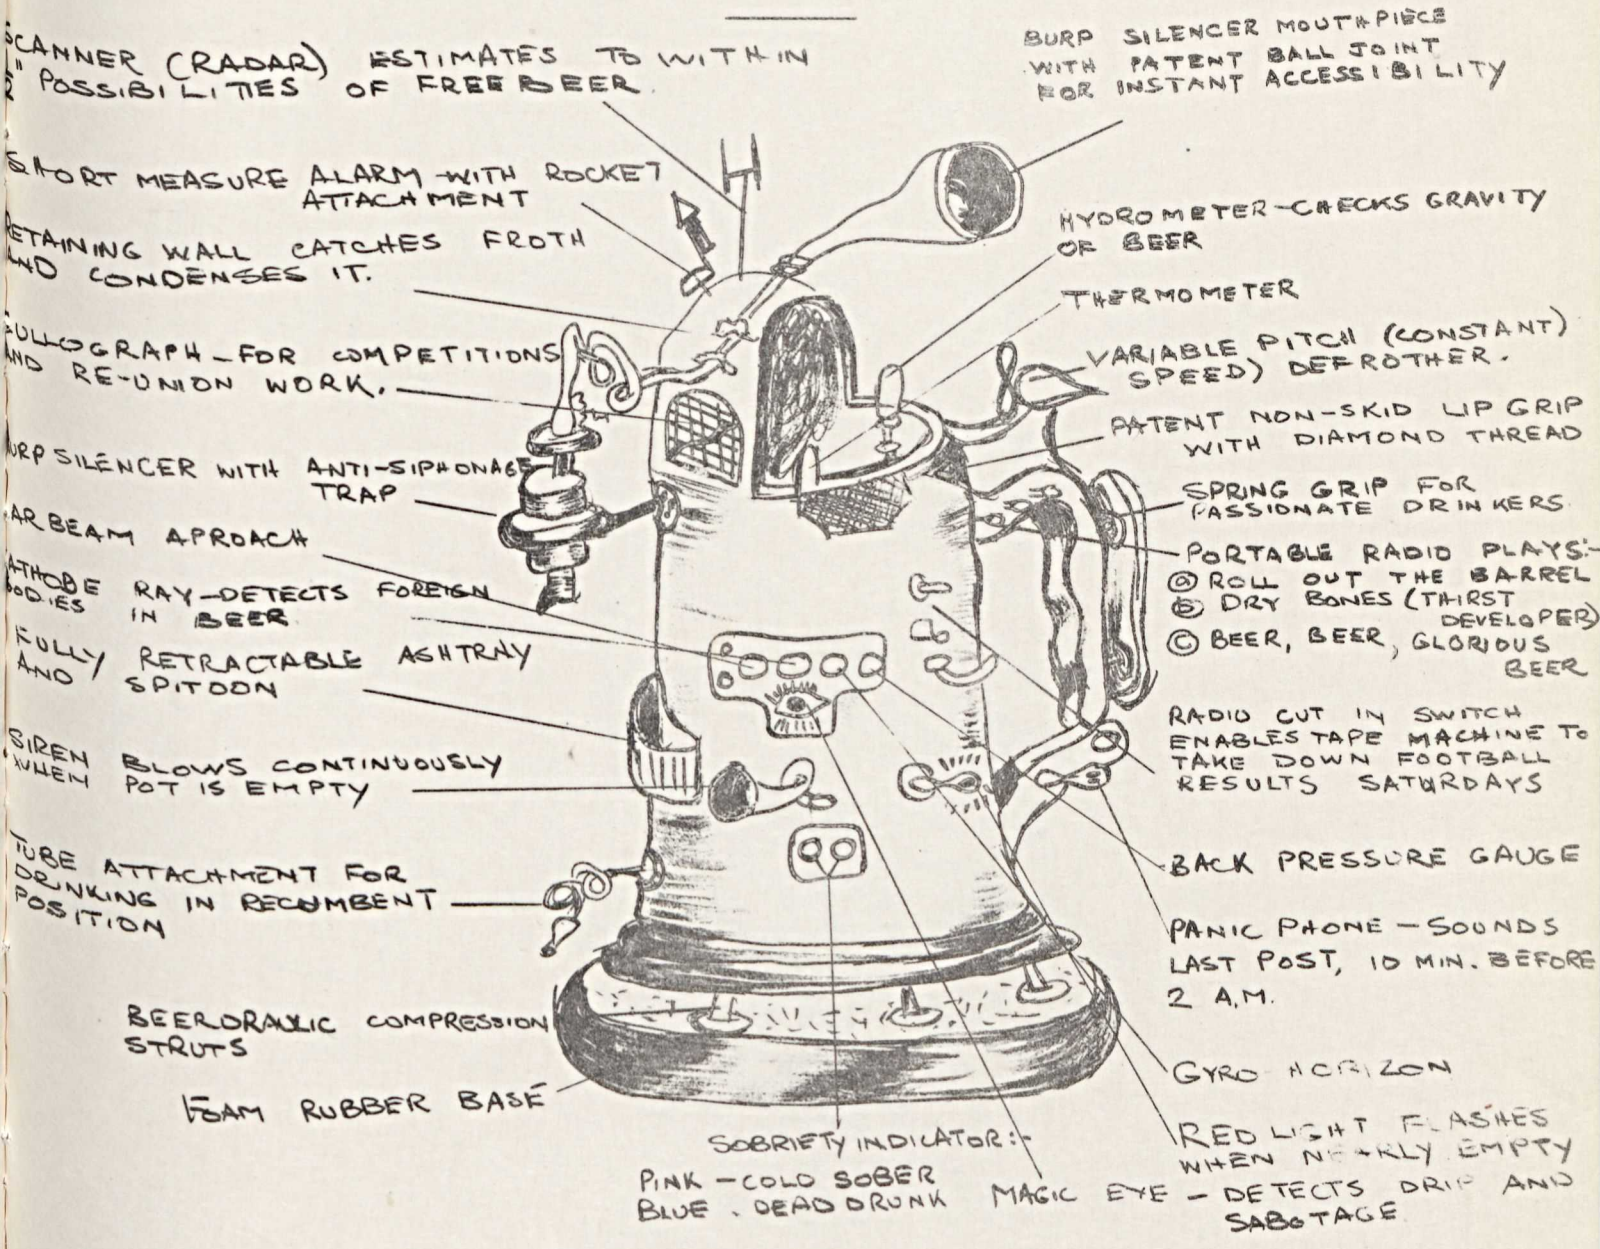 SCANNER (RADAR) ESTIMATES TO WITHIN
POSSIBILITIES OF FREE BEER.
SHORT MEASURE ALARM WITH ROCKET
ATTACHMENT
RETAINING WALL CATCHES FROTH
AND CONDENSES IT.
FOR COMPETITIONS
AND RE-UNION WORK.
BURP SILENCER WITH ANTI-SIPHONAGE
TRAP
BEAM APROACH
CATHODE RAY-DETECTS FOREIGN
BODIES IN BEER
FULLY RETRACTABLE ASHTRAY
AND SPITOON
SIREN BLOWS CONTINUOUSLY
WHEN POT IS EMPTY
TUBE ATTACHMENT FOR
DRINKING IN RECUMBENT
POSITION
BEERDRAULIC COMPRESSION
STRUTS
FOAM RUBBER BASE
SOBRIETY INDICATOR:-
PINK - COLD SOBER
BLUE . DEAD DRUNK
BURP SILENCER MOUTHPIECE
WITH PATENT BALL JOINT
FOR INSTANT ACCESSIBILITY
HYDROMETER-CHECKS GRAVITY
OF BEER
THERMOMETER
VARIABLE PITCH (CONSTANT)
SPEED) DEFROTHER.
PATENT NON-SKID LIP GRIP
WITH DIAMOND THREAD
SPRING GRIP FOR
PASSIONATE DRINKERS.
PORTABLE RADIO PLAYS:-
ⓐ ROLL OUT THE BARREL
ⓑ DRY BONES (THIRST
DEVELOPER)
Ⓒ BEER, BEER, GLORIOUS
BEER
RADIO CUT IN SWITCH
ENABLES TAPE MACHINE TO
TAKE DOWN FOOTBALL
RESULTS SATURDAYS
BACK PRESSURE GAUGE
PANIC PHONE - SOUNDS
LAST POST, 10 MIN. BEFORE
2 A.M.
GYRO HORIZON
RED LIGHT FLASHES
WHEN NEARLY EMPTY
MAGIC EYE - DETECTS DRIP AND
SABOTAGE